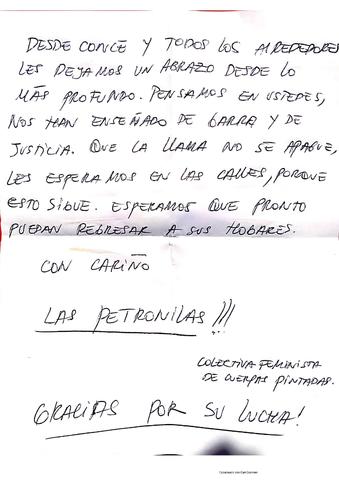 DESDE CONCE Y TODOS LOS ALREDEDORES
LES DEJAMOS UN ABRAZO DESDE LO
MÁS PROFUNDO. PENSAMOS EN USTEDES,
NOS HAN ENSEÑADO DE GARRA Y DE
JUSTICIA. QUE LA LLAMA NO SE APAGUE,
LES ESPERAMOS EN LAS CALLES, PORQUE
ESTO SIGUE. ESPERAMOS QUE PRONTO
PUEDAN REGRESAR A SUS HOGARES.
CON CARIÑO
LAS PETRONILAS !!!
COLECTIVA FEMINISTA
DE CUERPAS PINTADAS.
GRACIAS POR SU LUCHA!